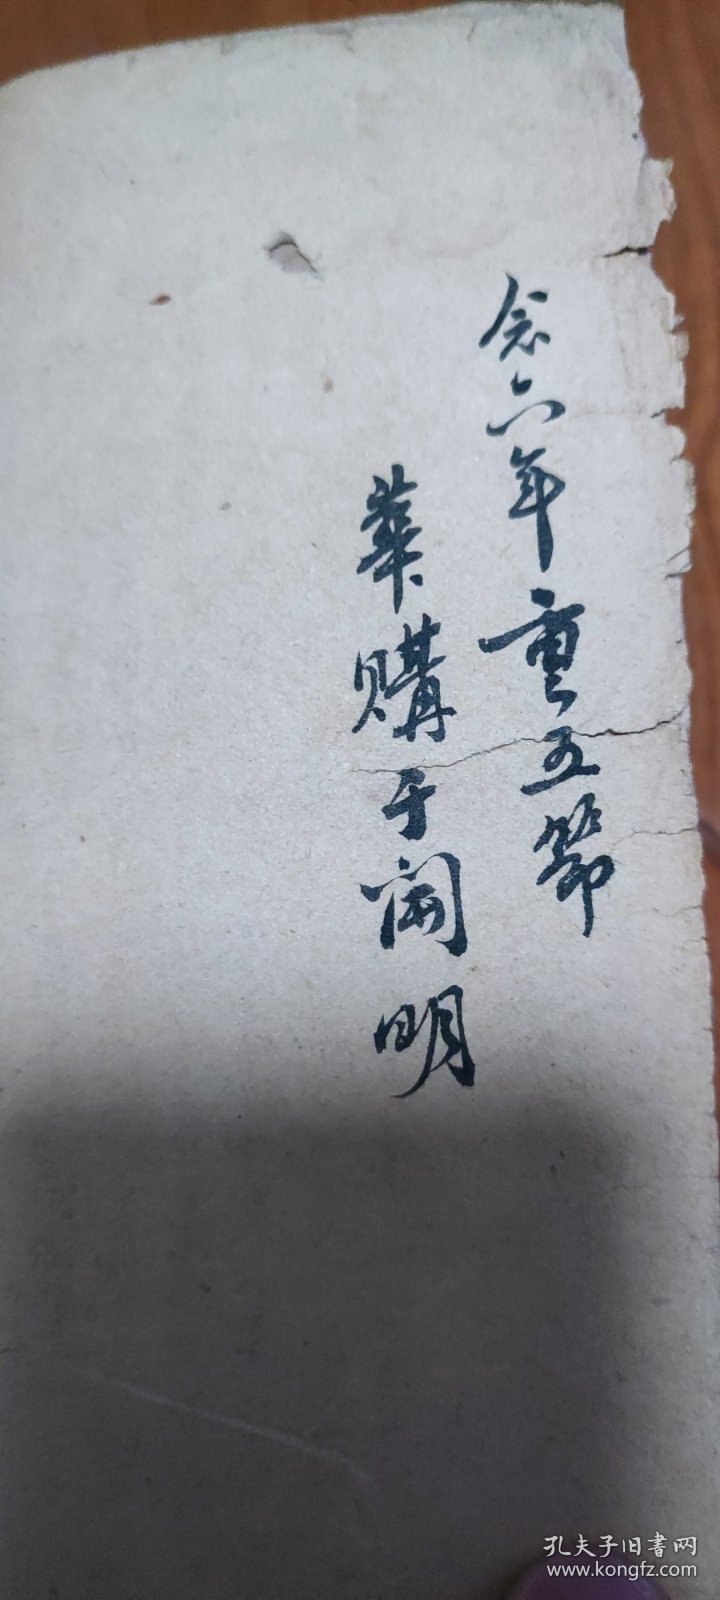 念六年重五節
華購于開明
孔夫子旧書网
www.kongfz.com